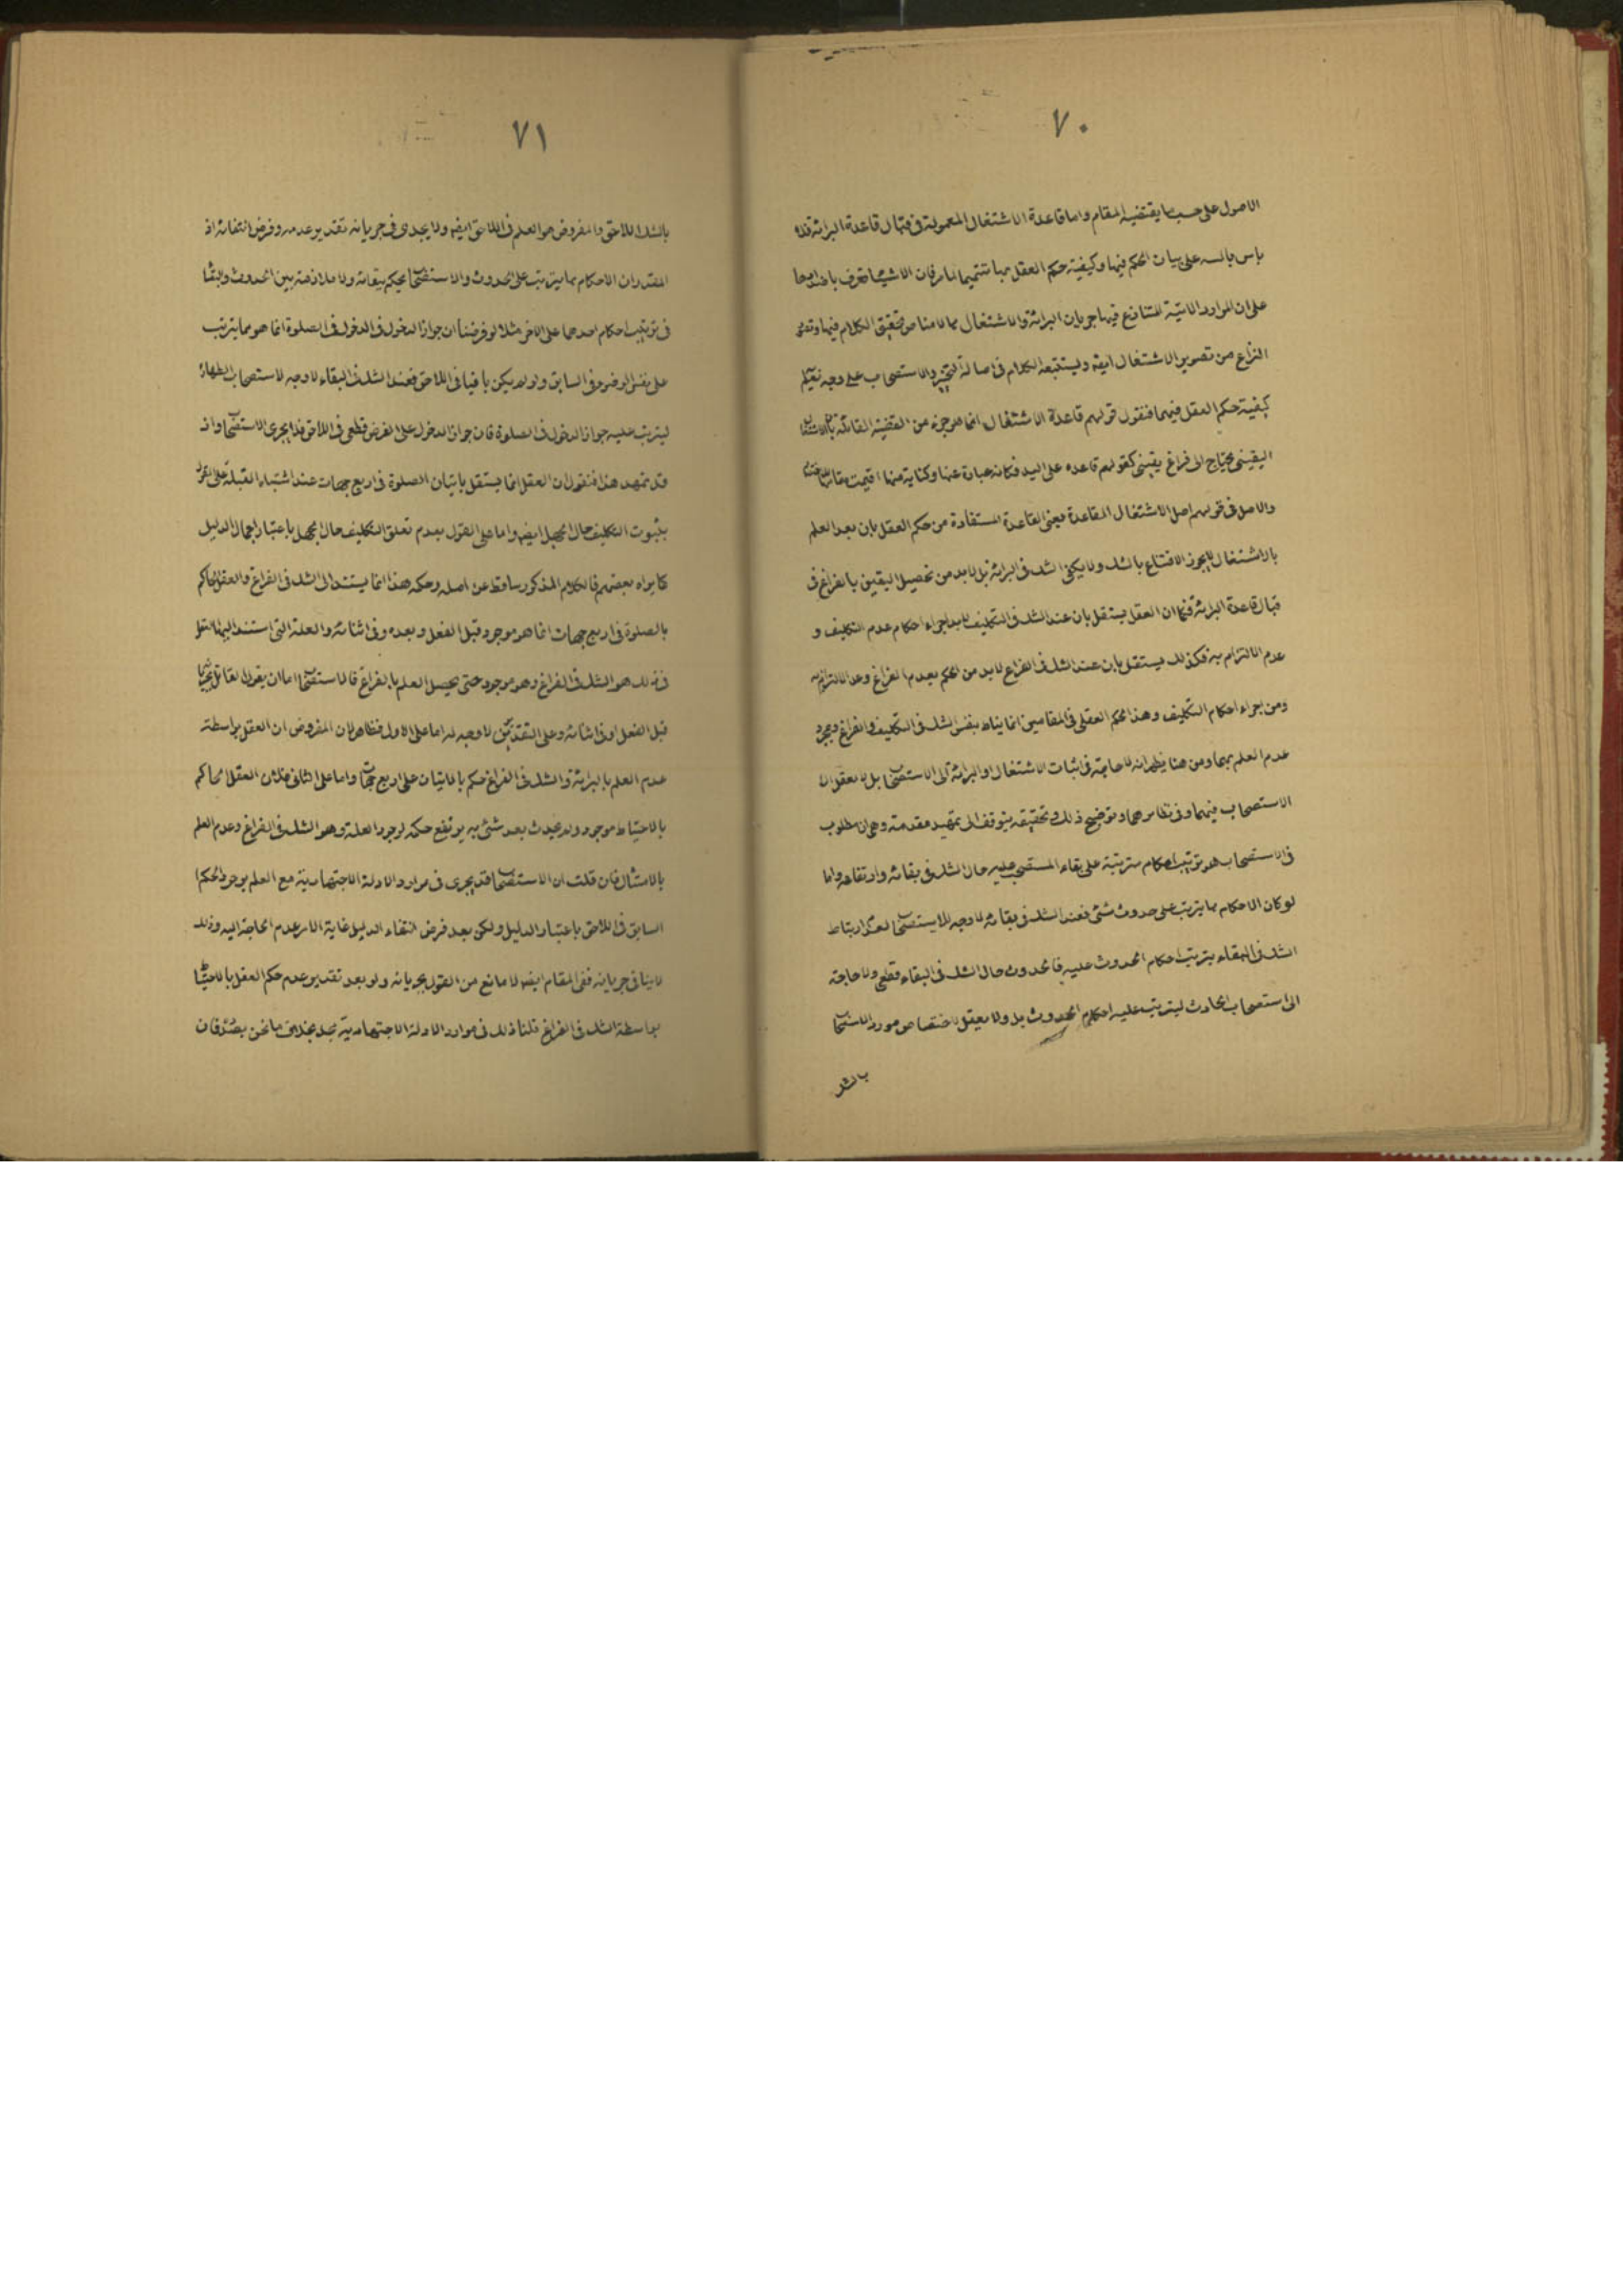 ٧٠
الاصول على حسب ما يقتضيه المقام واما قاعدة الاشتغال المعمولة فى قبال قاعدة البرائة فلا
باس بالسه على بيان الحكم فيها وكيفية حكم العقل بها تتميما لما مر فان الاشيا تعرف باضدادها
على ان الموارد الاتية المتنازع فيها جريان البرائة والاشتغال مما لا مناص تحقيق الكلام فيها وتعقل
النزاع من تصوير الاشتغال ايضا ويستتبعه الكلام فى اصالة التخيير والاستصحاب على وجه نعلم
كيفية حكم العقل فيهما فنقول قولهم قاعدة الاشتغال انما هو جزء من القضية القائلة بان الاشتغال
اليقينى يحتاج الى فراغ يقينى كقولهم قاعدة على اليد فكانه عبارة عنها وكناية عنها اقيمت مقامها
والاصل فى قولهم اصل الاشتغال القاعدة يعنى القاعدة المستفادة من حكم العقل بان بعد العلم
بالاشتغال لا يجوز الاقتناع بالشك ولا يكفى الشك فى البرائة بل لابد من تحصيل اليقين بالفراغ فى
قبال قاعدة البرائة فكما ان العقل يستقل بان عند الشك فى التكليف لابد اجراء احكام عدم التكليف و
عدم الالتزام به فكذلك يستقل بان عند الشك فى الفراغ لابد من الحكم بعدم الفراغ وعد الالتزام به
ومن اجراء احكام التكليف وهذا الحكم العقلى فى المقامين انما يناط بنفس الشك فى التكليف والفراغ ومجرد
عدم العلم بهما ومن هنا يظهر انه لا حاجة فى اثبات الاشتغال او البرائة الى الاستصحاب بل لا يعقل ان
الاستصحاب فيهما وفى نظائرهما وتوضيح ذلك وتحقيقه يتوقف الى تمهيد مقدمة وهى ان المطلوب
فى الاستصحاب هو ترتيب احكام مترتبة على بقاء المستصحب عليه حال الشك فى بقائه وارتفاعه واما
لو كان الاحكام مما يترتب على حدوث شئ فعند الشك فى بقائه لا وجه للاستصحاب لعدم ارتباط
الشك فى البقاء بترتيب احكام الحدوث عليه فالحدوث حال الشك فى البقاء قطعى ولا حاجة
الى استصحاب الحادث ليترتب عليه احكام الحدوث بل ولا يعقل لاختصاص مورد الاستصحاب
بالشك
٧١
بالشك اللاحق والمفروض هو العلم فى اللاحق ايضا ولا يجدى فى جريانه تقدير عدمه وفرض انتفائه اذ
المقدر ان الاحكام مما يترتب على الحدوث والاستصحاب يحكم ببقائه ولا ملازمة بين الحدوث والبقاء
فى ترتيب احكام احدهما على الاخر مثلا لو فرضنا ان جواز الدخول فى الدخول فى الصلوة انما هو مما يترتب
على نفس الوضوء فى السابق ولو لم يكن باقيا فى اللاحق فعند الشك فى البقاء لا وجه لاستصحاب الطهارة
ليترتب عليه جواز الدخول فى الصلوة فان جواز الدخول على الفرض قطعى فى اللاحق فلا يجرى الاستصحاب واذ
قد تمهد هذا فنقول ان العقل انما يستقل باتيان الصلوة فى اربع جهات عند اشتباه القبلة على القول
بثبوت التكليف حال الجهل ايضا واما على القول بعدم تعلق التكليف حال الجهل باعتبار اجمال الدليل
كما يراه بعضهم فالكلام المذكور ساقط عن اصله وحكمه هذا انما يستند الى الشك فى الفراغ والعقل الحاكم
بالصلوة فى اربع جهات انما هو موجود قبل الفعل وبعده وفى اثنائه والعلة التى استند اليها العقل
فى ذلك هو الشك فى الفراغ وهو موجود حتى يحصل العلم بالفراغ فالاستصحاب اما ان يقول القائل بجريانه
قبل الفعل او فى اثنائه وعلى التقديرين لا وجه له اما على الاول فظاهر لان المفروض ان العقل بواسطة
عدم العلم بالبرائة والشك فى الفراغ حكم بالاتيان على اربع جهات واما على الثانى فلان العقل الحاكم
بالاحتياط موجود ولم يحدث بعد شئ به يرتفع حكمه لوجود العلة وهو الشك فى الفراغ وعدم العلم
بالامتثال فان قلت ان الاستصحاب قد يجرى فى موارد الادلة الاجتهادية مع العلم بوجود الحكم
السابق فى اللاحق باعتبار الدليل ولكن بعد فرض انتفاء الدليل غاية الامر عدم الحاجة اليه وذلك
لا ينافى جريانه ففى المقام ايضا لا مانع من القول بجريانه ولو بعد تقدير عدم حكم العقل بالاحتياط
بواسطة الشك فى الفراغ قلنا ذلك فى موارد الادلة الاجتهادية بخلاف ما نحن بصدده فان